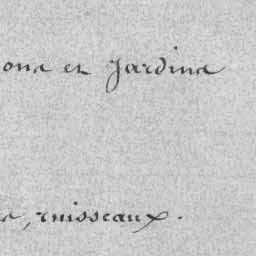 et Jardins
, ruisseaux.